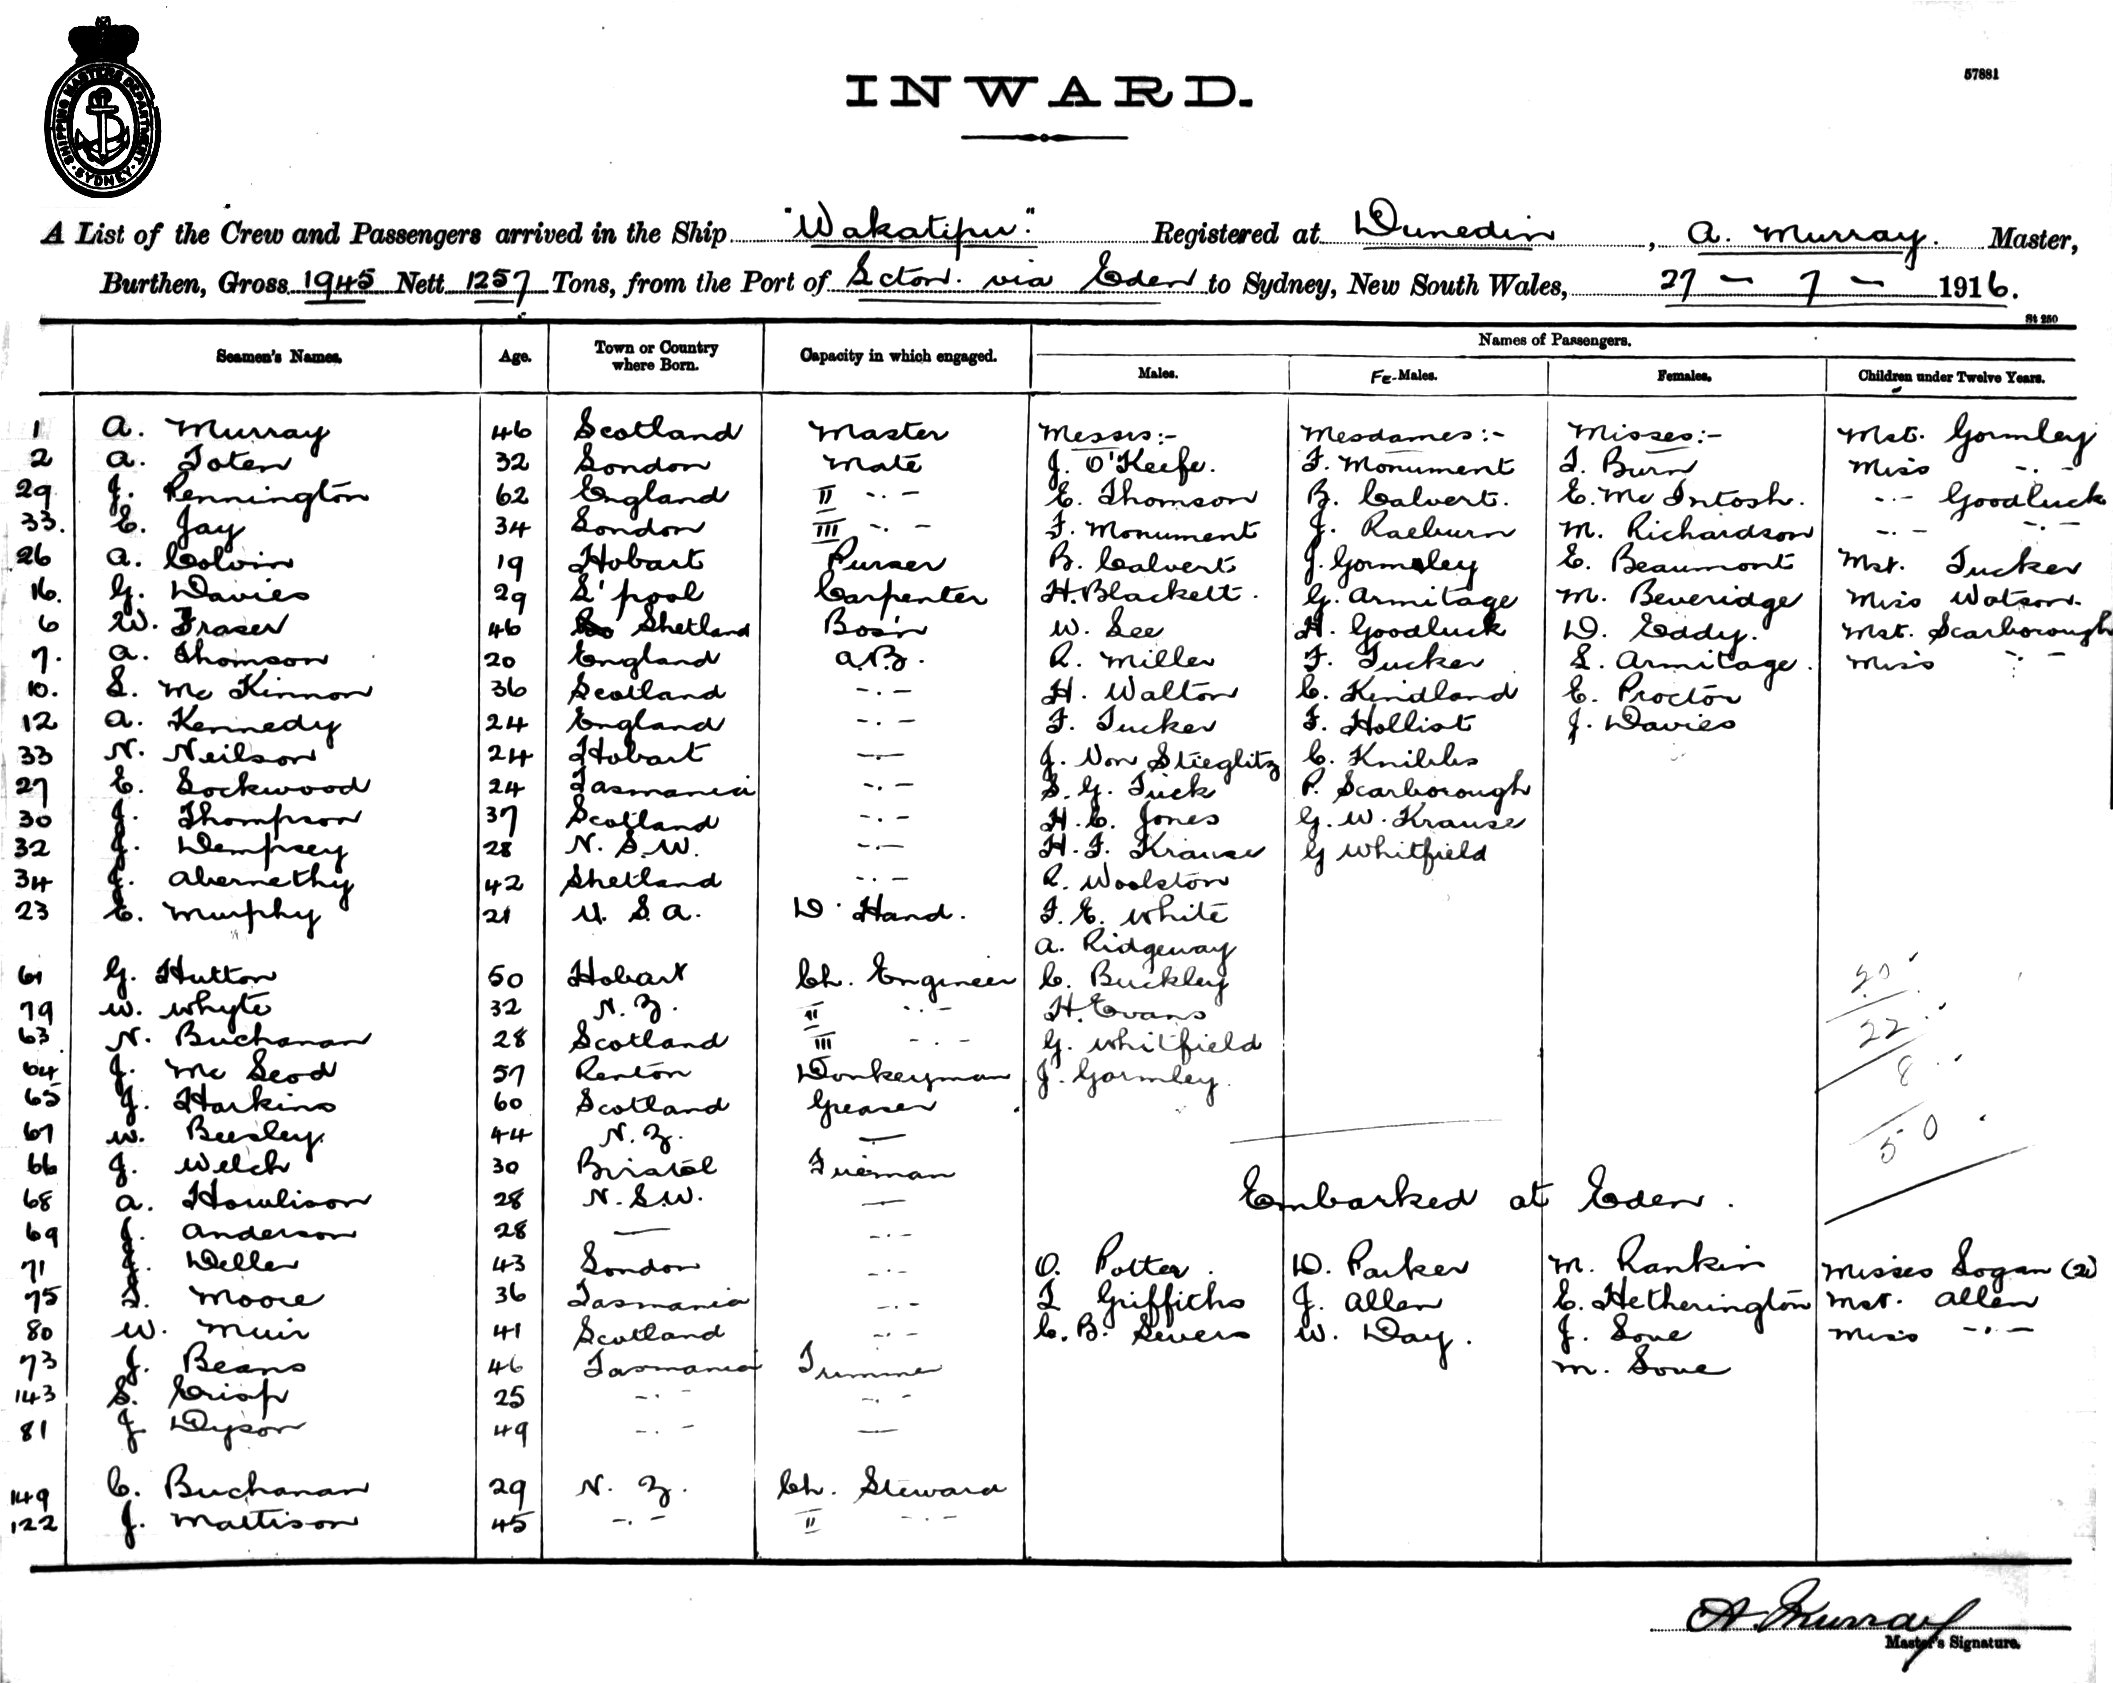 SHIPPING MASTERS DEPARTMENT · SYDNEY ·
57881
INWARD.
A List of the Crew and Passengers arrived in the Ship "Wakatipu". Registered at Dunedin, A. Murray. Master,
Burthen, Gross 1945 Nett 1257 Tons, from the Port of Lcton. via Eden to Sydney, New South Wales, 27 - 7 - 1916.
St 250
Seamen's Names. Age. Town or Country where Born. Capacity in which engaged. Names of Passengers.
Males. Fe-Males. Females. Children under Twelve Years.
1 A. Murray 46 Scotland Master Messrs:- Mesdames:- Misses:- Mst. Gormley
2 A. Toten 32 London Mate J. O'Keefe. F. Monument T. Burn Miss -.-
29 J. Pennington 62 England II -.- E. Thomson B. Calvert. E. Mc Intosh. -.- Goodluck
33. E. Jay 34 London III -.- F. Monument J. Raeburn M. Richardson -.- -.-
26 A. Colvin 19 Hobart Purser B. Calvert J. Gormley E. Beaumont Mst. Tucker
16. G. Davies 29 L'pool Carpenter H. Blackett. G. Armitage M. Beveridge Miss Watson.
6 W. Fraser 46 Shetland Bos'n W. Lee H. Goodluck D. Eddy. Mst. Scarborough
7. A. Thomson 20 England A.B. R. Miller F. Tucker L. Armitage. Miss -.-
10. L. Mc Kinnon 36 Scotland -.- H. Walton C. Kindland E. Proctor
12 A. Kennedy 24 England -.- F. Tucker F. Hollist J. Davies
33 N. Neilson 24 Hobart -.- J. Von Stieglitz C. Knibbs
27 E. Lockwood 24 Tasmania -.- S. G. Tuck P. Scarborough
30 J. Thompson 37 Scotland -.- H. C. Jones G. W. Krause
32 J. Dempsey 28 N. S. W. -.- H. F. Krause G Whitfield
34 J. Abernethy 42 Shetland -.- R. Woolston
23 E. Murphy 21 U. S. A. D. Hand. F. E. White
A. Ridgeway
61 G. Hutton 50 Hobart Ch. Engineer C. Buckley
79 W. Whyte 32 N. Z. II -.- H. Evans
63 N. Buchanan 28 Scotland III -.- G. Whitfield
64 J. Mc Leod 57 Renton Donkeyman J. Gormley.
65 J. Harkins 60 Scotland Greaser
67 W. Beesley. 44 N. Z. —
66 J. Welch 30 Bristol Fireman
20
22
8
50
68 A. Howlison 28 N. S. W. —
Embarked at Eden.
69 J. Anderson 28 — -.-
71 J. Weller 43 London -.- O. Potter. D. Parker M. Rankin Misses Logan (2)
75 T. Moore 36 Tasmania -.- T Griffiths J. Allen E. Hetherington Mst. Allen
80 W. Muir 41 Scotland -.- C. B. Severs W. Day. J. Love Miss -.-
73 J. Beans 46 Tasmania Trimmer M. Love
143 S. Crisp 25 -.- -.-
81 J. Dyson 49 -.- —
149 C. Buchanan 29 N. Z. Ch. Steward
122 J. Mattison 45 -.- II -.-
A. Murray
Master's Signature.